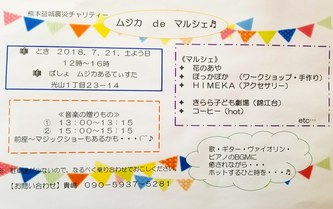 熊本益城震災チャリティー
ムジカ de マルシェ♬
◆ とき 2018,7,21,土よう日
12時～16時
◆ ばしょ ムジカあるてぃすた
光山1丁目23－14
≪音楽の贈りもの≫
① 13:00～13:15
② 15:00～15:15
前座～マジックショーもあるかも・・・
≪マルシェ≫
✦ 花のあや
✦ ぽっかぽか （ワークショップ・手作り）
✦ HIMEKA（アクセサリー）
✦ きらら子ども劇場（錦江台）
✦ コーヒー（hot）
etc…
歌・ギター・ヴァイオリン・
ピアノのBGMに
癒されながら・・・
ホットするひと時を・・・♬
ないので、なるべく乗り合わせでおこしください。
【お問い合わせ】貴崎 090－5937－5281